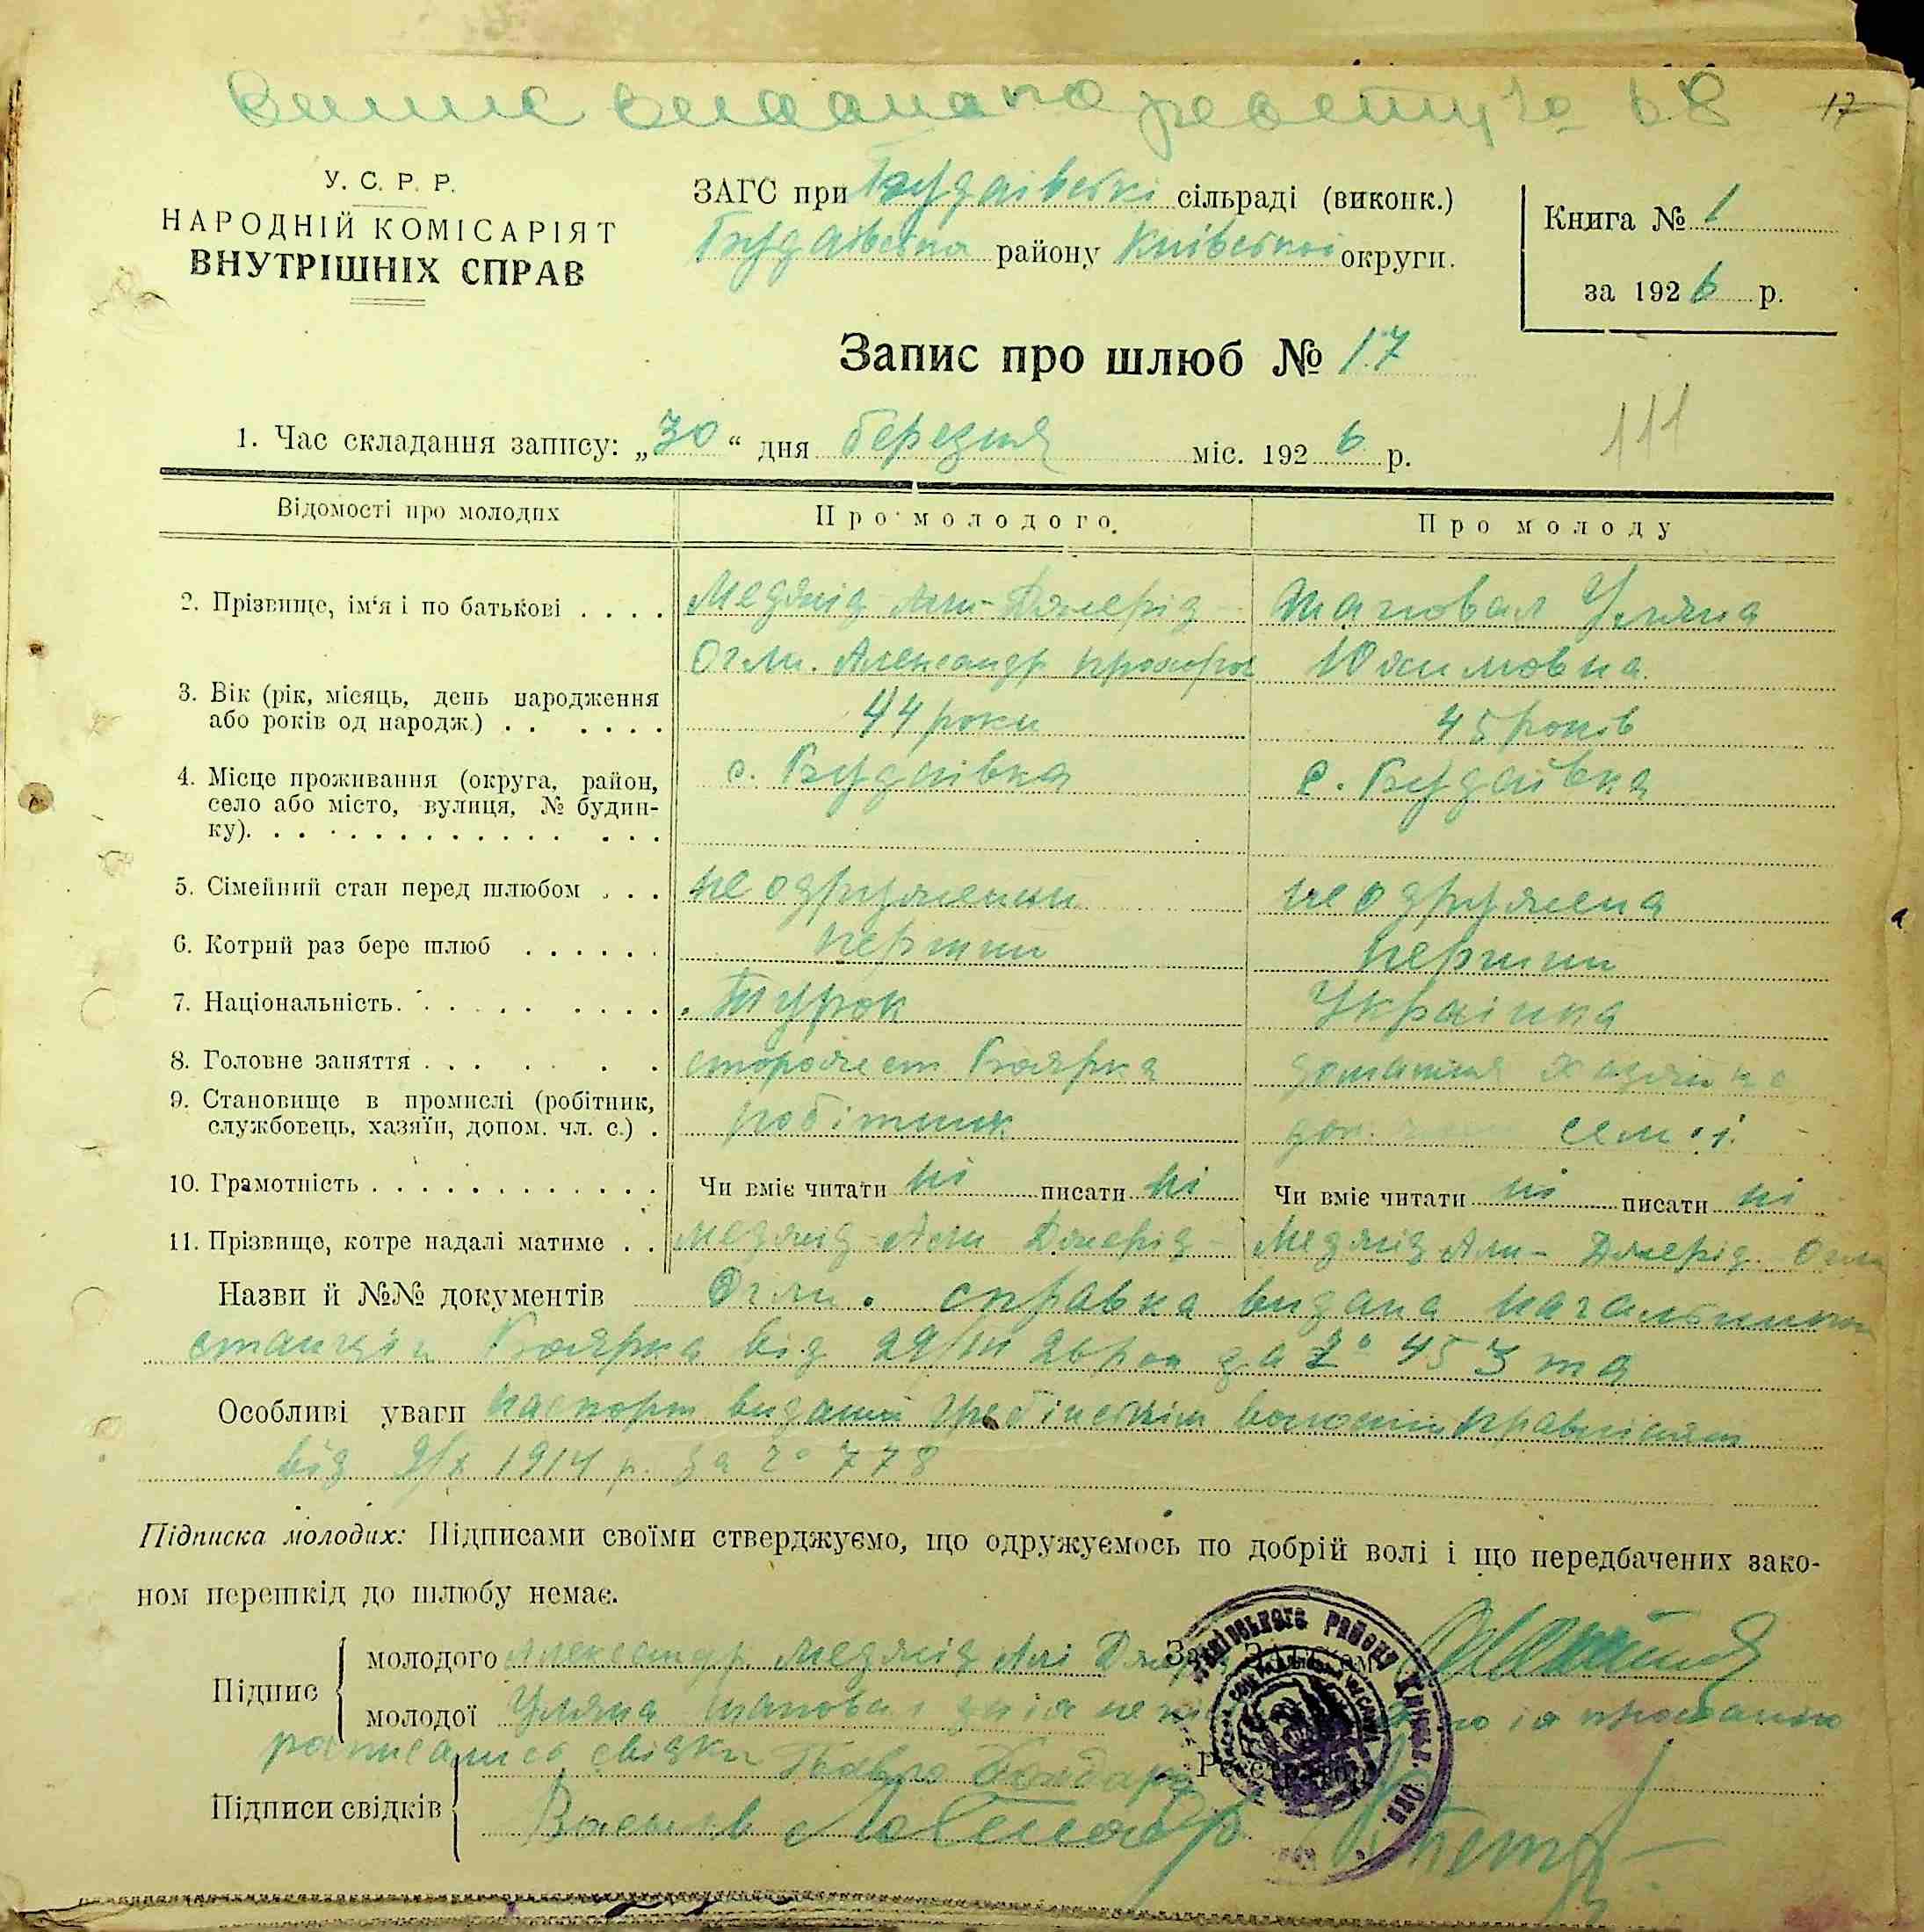 Випис видана по реєстру № 68
17
У. С. Р. Р.
НАРОДНІЙ КОМІСАРІЯТ
ВНУТРІШНІХ СПРАВ
ЗАГС при Будаівські сільраді (виконк.)
Будаівська району Київської округи.
Книга № 1
за 1926 р.
Запис про шлюб № 17
111
1. Час складання запису: „30“ дня березня міс. 1926 р.
Відомості про молодих
Про молодого.
Про молоду
2. Прізвище, ім‘я і по батькові . . . .
Меджід Али-Джерід
Огли. Александр
Шаповал Уляна
Юхимовна.
3. Вік (рік, місяць, день народження
або років од народж.) . . . . . .
44 роки
45 років
4. Місце проживання (округа, район,
село або місто, вулиця, № будин-
ку). . . . . . . . . . . . . . . .
с. Будаівка
с. Будаівка
5. Сімейний стан перед шлюбом . . .
не одружений
не одружена
6. Котрий раз бере шлюб . . . . . .
перший
перший
7. Національність. . . . . . . . . .
Турок
Украінка
8. Головне заняття . . . . . . .
сторож ст Боярка
домашня хазяйка
9. Становище в промислі (робітник,
службовець, хазяїн, допом. чл. с.) .
робітник
доп. семʼі.
10. Грамотність . . . . . . . . . . . . .
Чи вміє читати ні писати ні
Чи вміє читати ні писати ні
11. Прізвище, котре надалі матиме . .
Меджід-Али Джерід-
Меджід Али- Джерід. Огли
Назви й №№ документів Огли. справка видана начальником
станціи Боярка від 29/III 26 рок за № 453 та
Особливі уваги паспорт виданий волосним правлінням
від 1914 р. за № 778
Підписка молодих: Підписами своїми стверджуємо, що одружуємось по добрій волі і що передбачених зако-
ном перешкід до шлюбу немає.
Підпис
молодого Александр Меджід Алі Джерід
молодої Уляна Шаповал
Зав. Загсом
розписались свідки Павло Бондар
Реєстратор
Підписи свідків
Василь